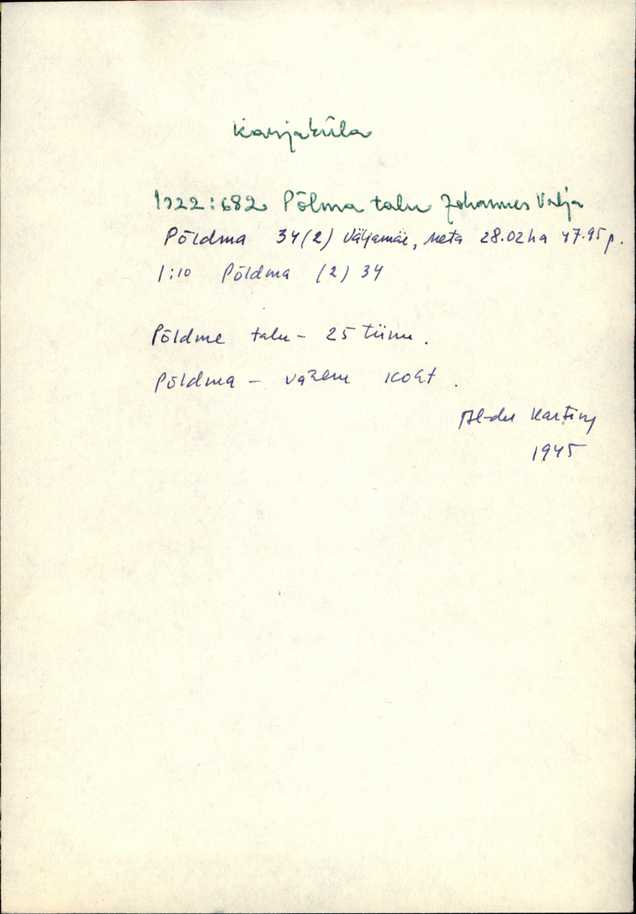 Karjaküla
1922:682 Põlma talu Johannes Valja
Põldma 34(2) Väljamäe, Meta 28.02ha 47.95 p.
1:10 Põldma (2) 34
Põldme talu - 25 tiinu.
Põldma - vazem koht.
Al-der Karting
1945